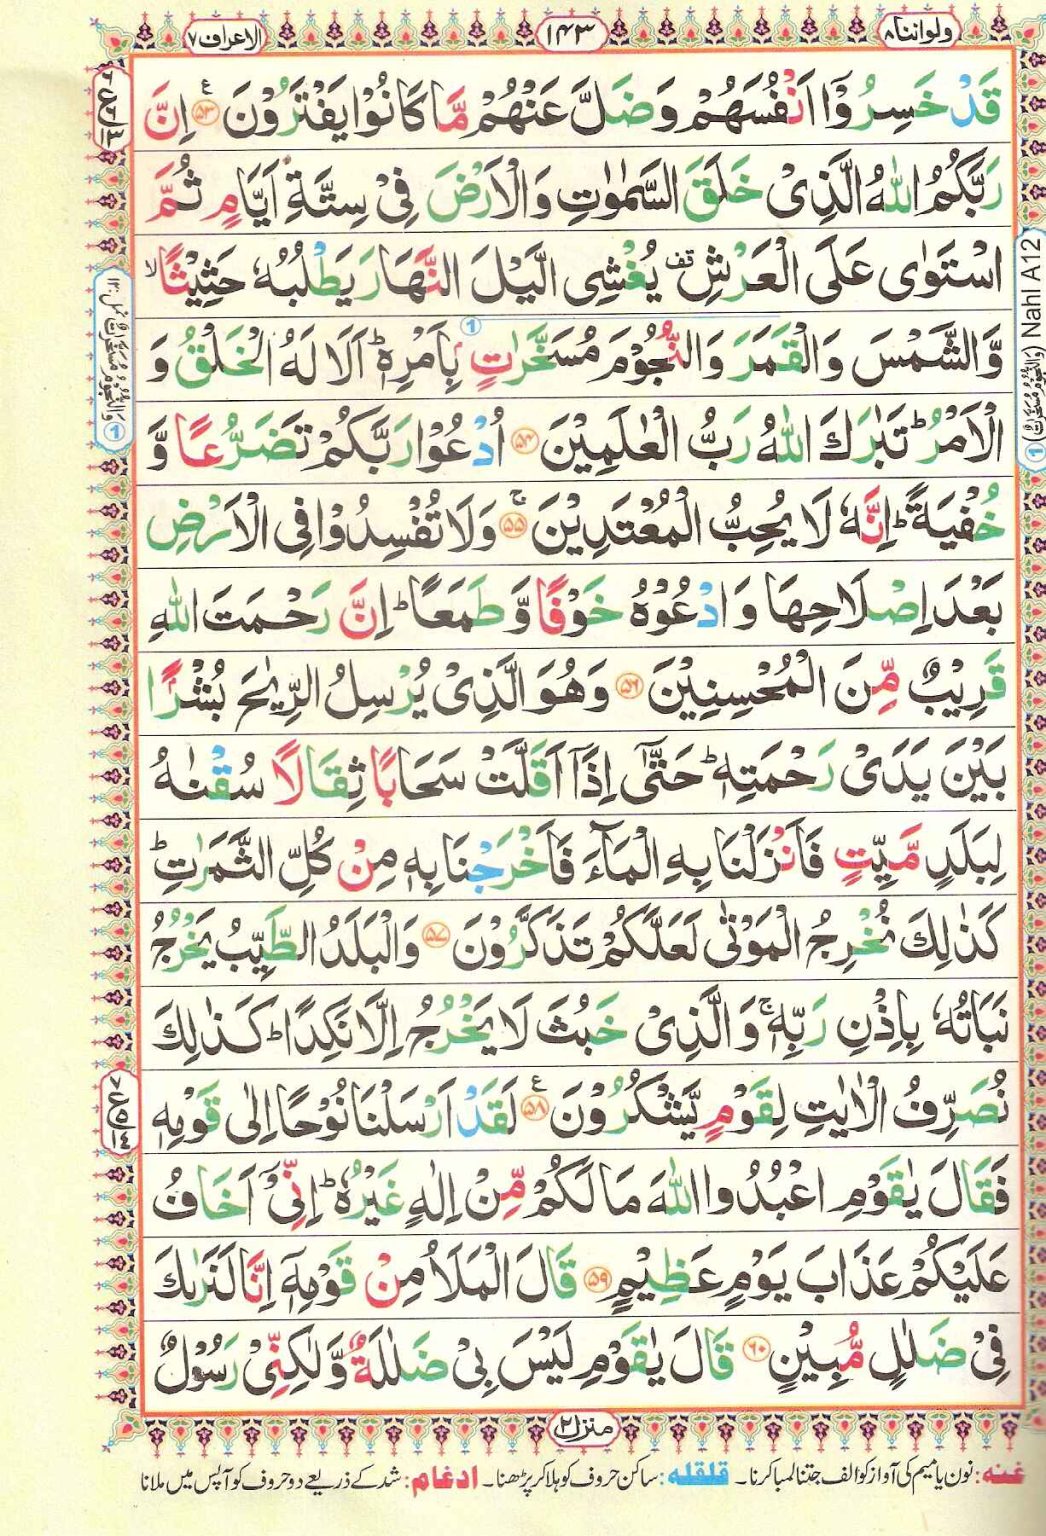 ولواننا ٨
١٤٣
الاعراف ٧
قَدْ خَسِرُوْۤا اَنْفُسَهُمْ وَضَلَّ عَنْهُمْ مَّا كَانُوْا يَفْتَرُوْنَ ﴿۵۳﴾ اِنَّ
رَبَّكُمُ اللّٰهُ الَّذِىْ خَلَقَ السَّمٰوٰتِ وَالْاَرْضَ فِىْ سِتَّةِ اَيَّامٍ ثُمَّ
اسْتَوٰى عَلَى الْعَرْشِ قف يُغْشِى الَّيْلَ النَّهَارَ يَطْلُبُهٗ حَثِيْثًا ۙ
وَّالشَّمْسَ وَالْقَمَرَ وَالنُّجُوْمَ مُسَخَّرٰتٍۭ بِاَمْرِهٖ ؕ اَلَا لَهُ الْخَلْقُ وَ
الْاَمْرُ ؕ تَبٰرَكَ اللّٰهُ رَبُّ الْعٰلَمِيْنَ ﴿۵۴﴾ اُدْعُوْا رَبَّكُمْ تَضَرُّعًا وَّ
خُفْيَةً ؕ اِنَّهٗ لَا يُحِبُّ الْمُعْتَدِيْنَ ۚ ﴿۵۵﴾ وَلَا تُفْسِدُوْا فِى الْاَرْضِ
بَعْدَ اِصْلَاحِهَا وَادْعُوْهُ خَوْفًا وَّطَمَعًا ؕ اِنَّ رَحْمَتَ اللّٰهِ
قَرِيْبٌ مِّنَ الْمُحْسِنِيْنَ ﴿۵۶﴾ وَهُوَ الَّذِىْ يُرْسِلُ الرِّيٰحَ بُشْرًا
بَيْنَ يَدَىْ رَحْمَتِهٖ ؕ حَتّٰۤى اِذَاۤ اَقَلَّتْ سَحَابًا ثِقَالًا سُقْنٰهُ
لِبَلَدٍ مَّيِّتٍ فَاَنْزَلْنَا بِهِ الْمَآءَ فَاَخْرَجْنَا بِهٖ مِنْ كُلِّ الثَّمَرٰتِ ؕ
كَذٰلِكَ نُخْرِجُ الْمَوْتٰى لَعَلَّكُمْ تَذَكَّرُوْنَ ﴿۵۷﴾ وَالْبَلَدُ الطَّيِّبُ يَخْرُجُ
نَبَاتُهٗ بِاِذْنِ رَبِّهٖ ۚ وَالَّذِىْ خَبُثَ لَا يَخْرُجُ اِلَّا نَكِدًا ؕ كَذٰلِكَ
نُصَرِّفُ الْاٰيٰتِ لِقَوْمٍ يَّشْكُرُوْنَ ﴿۵۸﴾ لَقَدْ اَرْسَلْنَا نُوْحًا اِلٰى قَوْمِهٖ
فَقَالَ يٰقَوْمِ اعْبُدُوا اللّٰهَ مَا لَكُمْ مِّنْ اِلٰهٍ غَيْرُهٗ ؕ اِنِّىْۤ اَخَافُ
عَلَيْكُمْ عَذَابَ يَوْمٍ عَظِيْمٍ ﴿۵۹﴾ قَالَ الْمَلَاُ مِنْ قَوْمِهٖۤ اِنَّا لَنَرٰىكَ
فِىْ ضَلٰلٍ مُّبِيْنٍ ﴿۶۰﴾ قَالَ يٰقَوْمِ لَيْسَ بِىْ ضَلٰلَةٌ وَّلٰكِنِّىْ رَسُوْلٌ
منزل ٢
غنه: نون یا میم کی آواز کو الف جتنا لمبا کرنا۔ قلقله: ساکن حروف کو ہلا کر پڑھنا۔ ادغام: شد کے ذریعے دو حروف کو آپس میں ملانا
① (وَالنُّجُوْمُ مُسَخَّرٰتٌ) Nahl A12